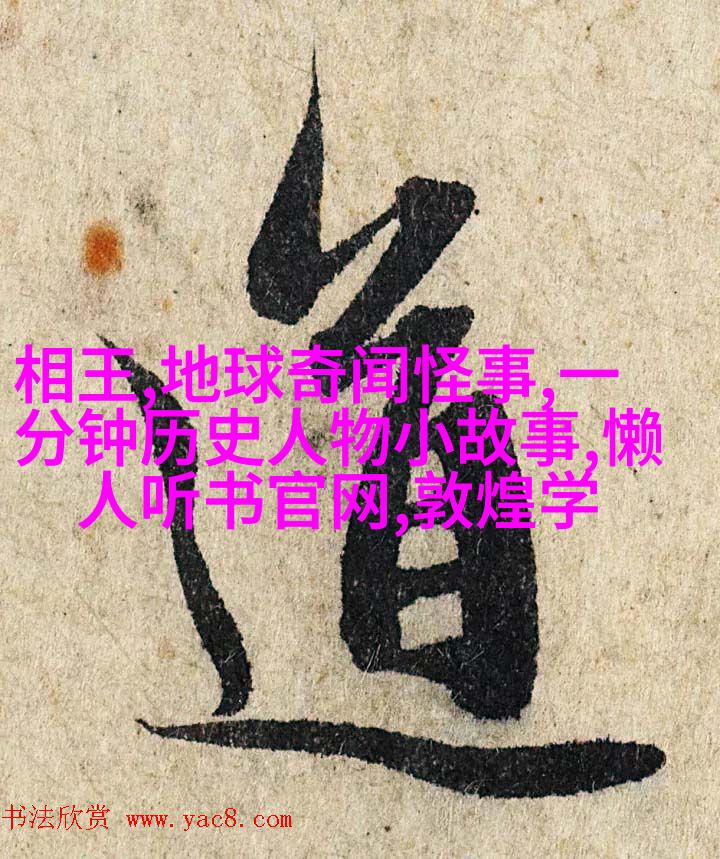 道
相王,地球奇闻怪事,一
分钟历史人物小故事,懒
人听书官网,敦煌学
书法欣赏 www.yac8.com